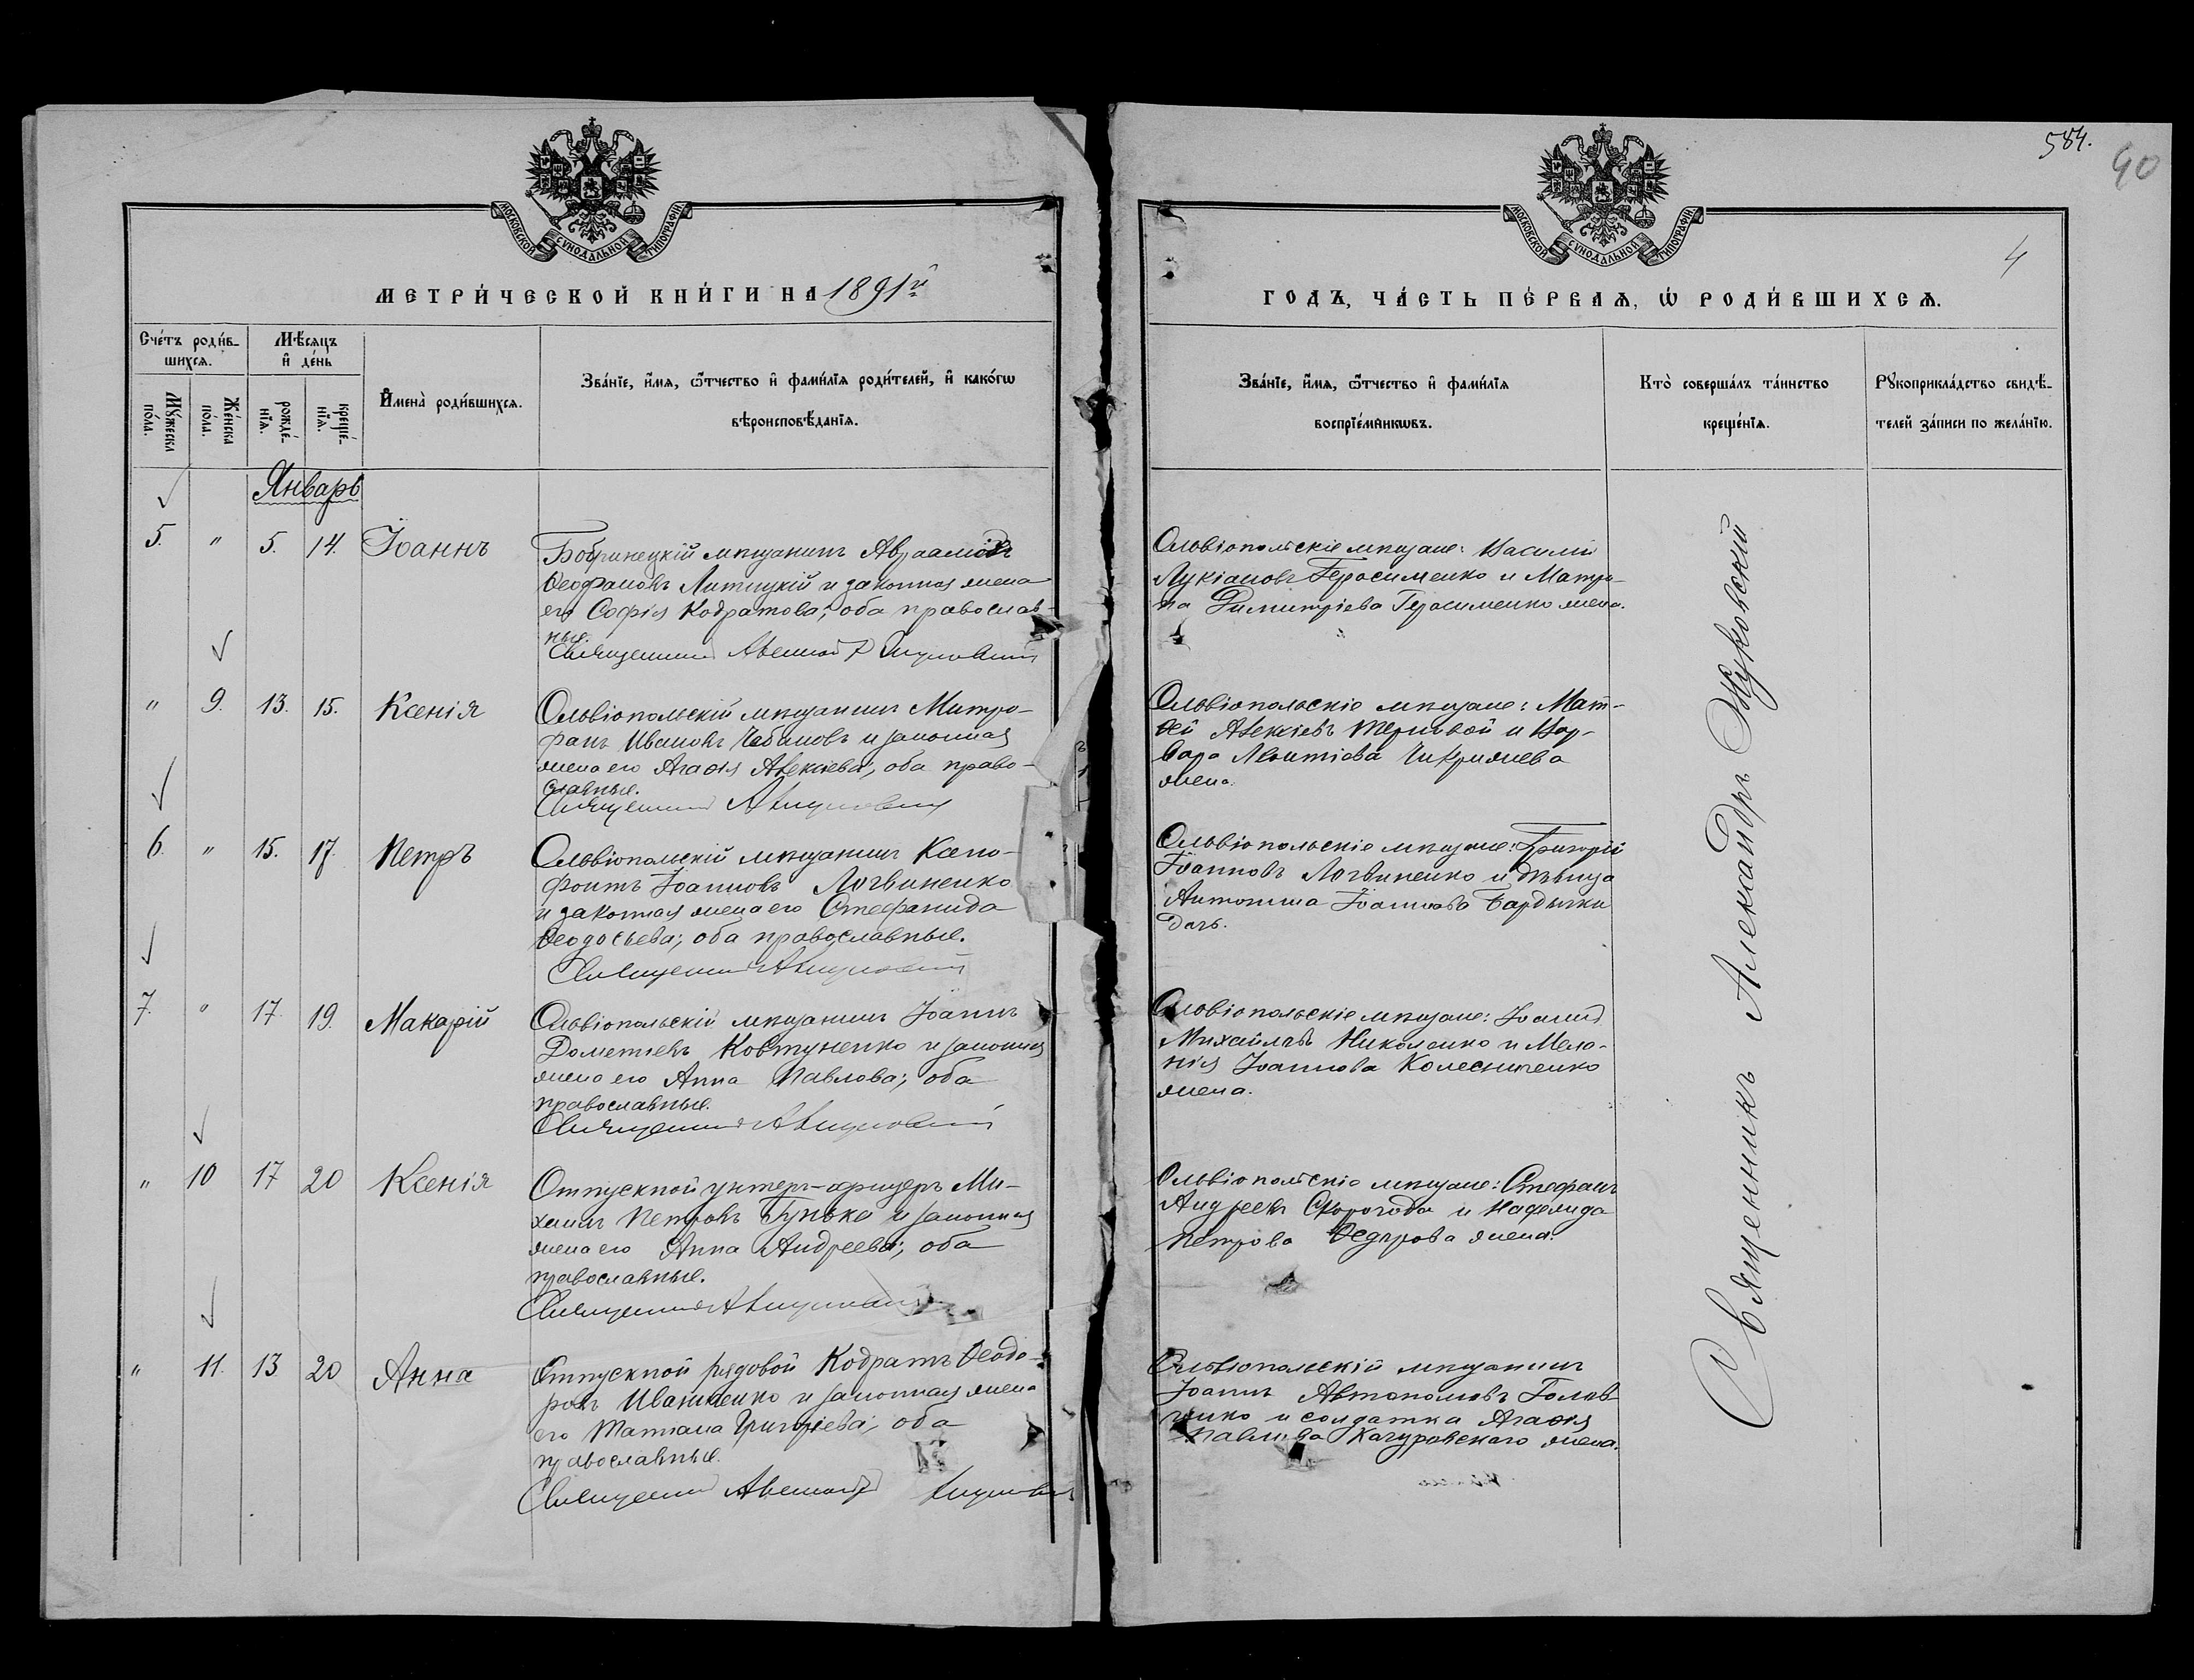 МОСКОВСКОЙ СѴНОДАЛЬНОЙ ТИПОГРАФІИ
МЕТРИ́ЧЕСКОЙ КНИ́ГИ НА 1891й
Сче́тъ роди́в-
шихсѧ.
Мѣ́сѧцъ
и҆ де́нь
Мꙋ́жеска
по́ла.
Же́нска
по́ла.
рожде́-
нїѧ.
креще́-
нїѧ.
И҆мена̀ роди́вшихсѧ.
Зва́нїе, и҆́мѧ, ѻ҆́тчество и҆ фами́лїѧ роди́телей, и҆ како́гѡ
вѣроисповѣ́данїѧ.
Январь
5. " 5. 14. Іоаннъ
Бобринецкій мѣщанинъ Авраамій
Ѳеофановъ Литицкій и законная жена
его Софія Кодратова; оба православ-
ные.
Священникъ Александръ Жуковскій
" 9. 13. 15. Ксенія
Ольвіопольскій мѣщанинъ Митро-
фанъ Ивановъ Чебановъ и законная
жена его Агаѳія Алексіева; оба право-
славные.
Священникъ А Жуковскій
6. " 15. 17. Петръ
Ольвіопольскій мѣщанинъ Ксено-
фонтъ Іоанновъ Логвиненко
и законная жена его Стефанида
Ѳеодосьева; оба православные.
Священникъ А Жуковскій
7. " 17. 19. Макарій
Ольвіопольскій мѣщанинъ Іоаннъ
Дометіевъ Ковтуненко и законная
жена его Анна Павлова; оба
православные.
Священникъ А Жуковскій
" 10 17 20 Ксенія
Отпускной унтеръ-офицеръ Ми-
хаилъ Петровъ Гунька и законная
жена его Анна Андреева; оба
православные.
Священникъ А Жуковскій
" 11. 13 20 Анна
Отпускной рядовой Кодратъ Ѳеодо-
ровъ Иващенко и законная жена
его Татіана Григоріева; оба
православные.
Священникъ Александръ Жуковскій
584.
40
4
МОСКОВСКОЙ СѴНОДАЛЬНОЙ ТИПОГРАФІИ
ГОДЪ, ЧА́СТЬ ПЕ́РВАѦ, Ѡ҆ РОДИ́ВШИХСѦ.
Зва́нїе, и҆́мѧ, ѻ҆́тчество и҆ фами́лїѧ
воспрїе́мникѡвъ.
Кто̀ соверша́лъ та́инство
креще́нїѧ.
Рꙋкоприкла́дство свидѣ́-
телей за́писи по жела́нїю.
Ольвіопольскіе мѣщане: Василій
Лукіановъ Герасименко и Матро-
на Димитріева Герасименко жена.
Ольвіопольскіе мѣщане: Мат-
ѳей Алексіевъ Терновой и Вар-
вара Леонтіева Чикрижева
жена.
Ольвіопольскіе мѣщане: Григорій
Іоанновъ Логвиненко и дѣвица
Антонина Іоаннова Бардычки
дочь.
Ольвіопольскіе мѣщане: Іоаннъ
Михайловъ Николенко и Мела-
нія Іоаннова Колесниченко
жена.
Ольвіопольскіе мѣщане: Стефанъ
Андреевъ Скорогода и
Петрова Ѳедорова жена.
Ольвіопольскій мѣщанинъ
Іоаннъ Автономовъ Голов
ченко и солдатка Агаѳія
Павлова Качуровскаго жена.
Священникъ Александръ Жуковскій